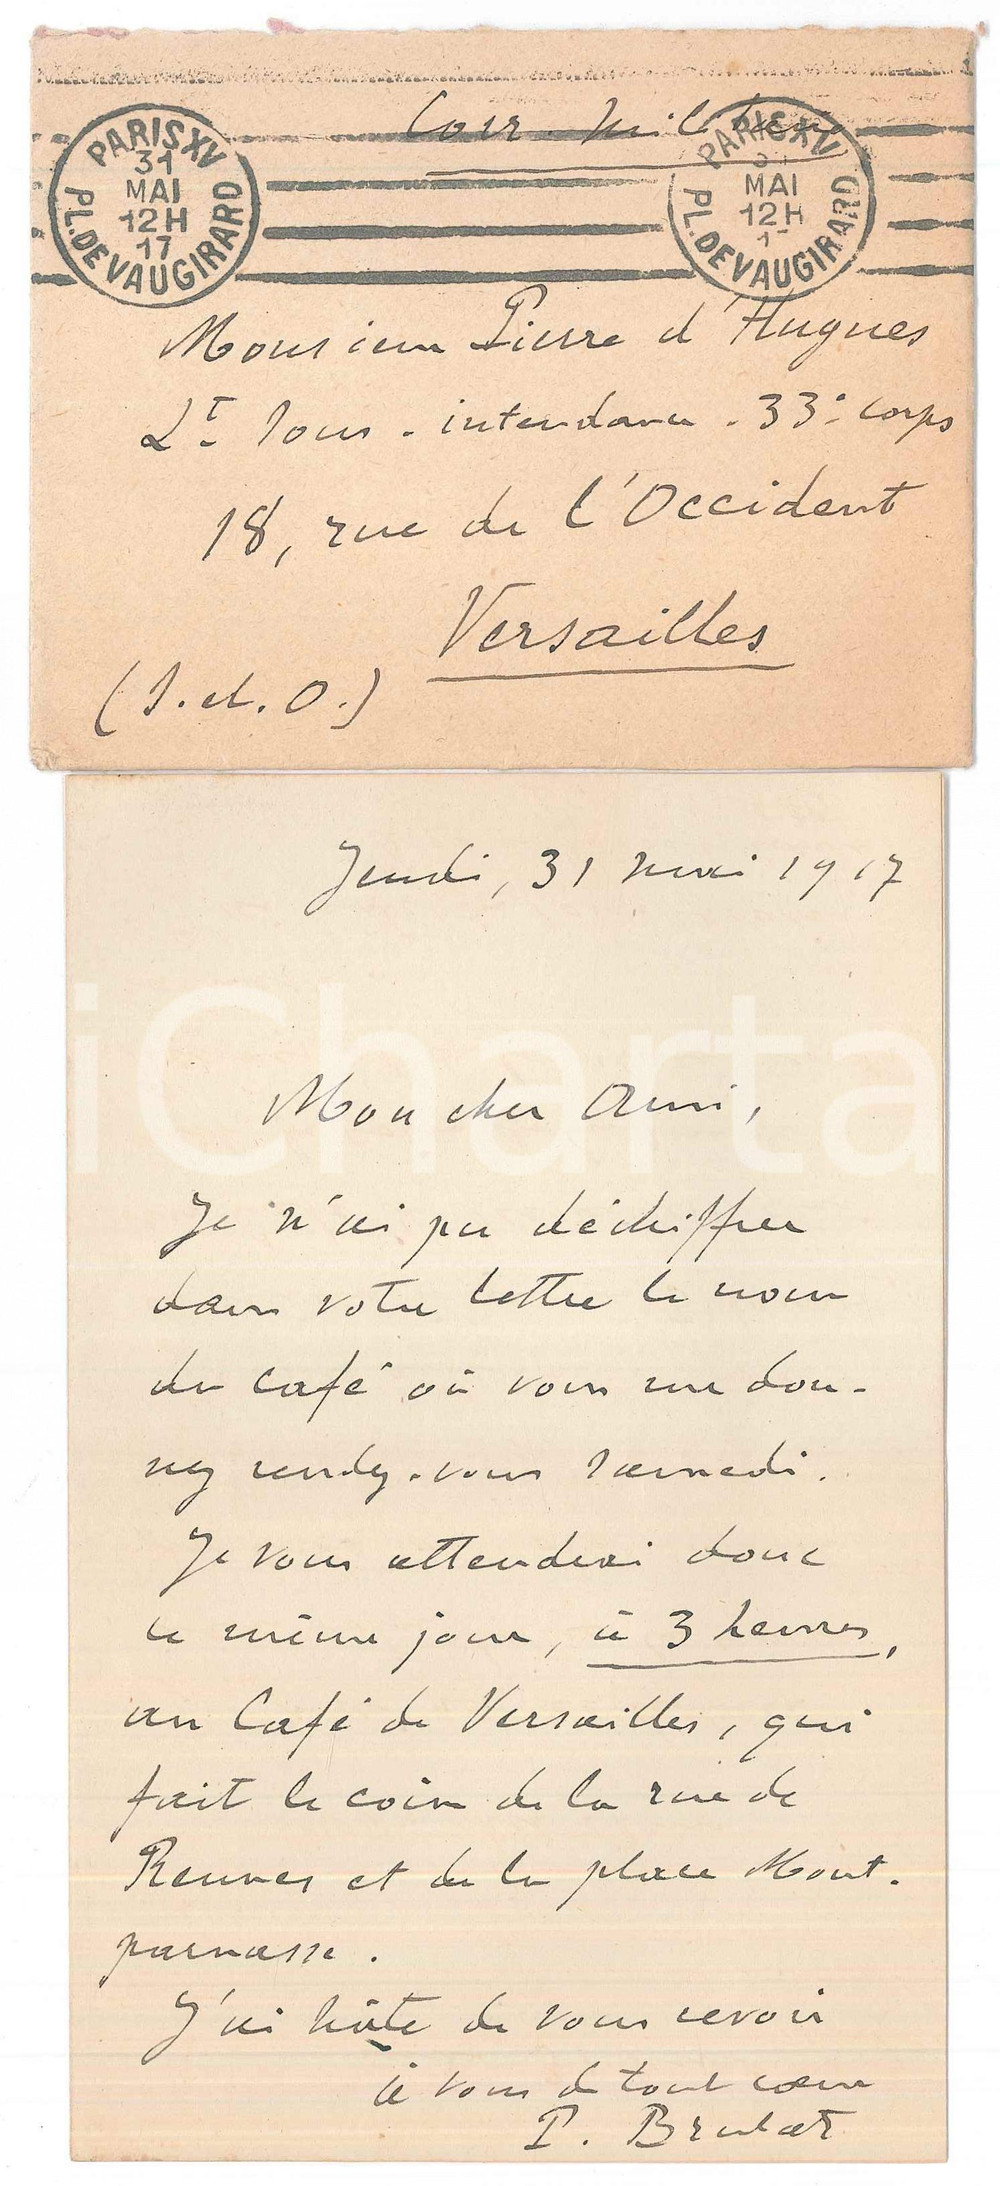 Corr. militaire
PARIS XV
31
MAI
12H
17
PL. DE VAUGIRARD
PARIS XV
MAI
12H
PL. DE VAUGIRARD
Monsieur Pierre d'Hugues
Lt. Sous-intendance. 33e corps
18, rue de l'Occident
Versailles
(S. et. O.)
Jeudi, 31 mai 1917
iCharta
Mon cher Ami,
Je n'ai pu déchiffrer
dans votre lettre le nom
du café où vous me don-
nez rendez-vous samedi.
Je vous attendrai donc
ce même jour, à 3 heures,
au Café de Versailles, qui
fait le coin de la rue de
Rennes et de la place Mont-
parnasse.
J'ai hâte de vous revoir
à vous de tout cœur
P. Brulat